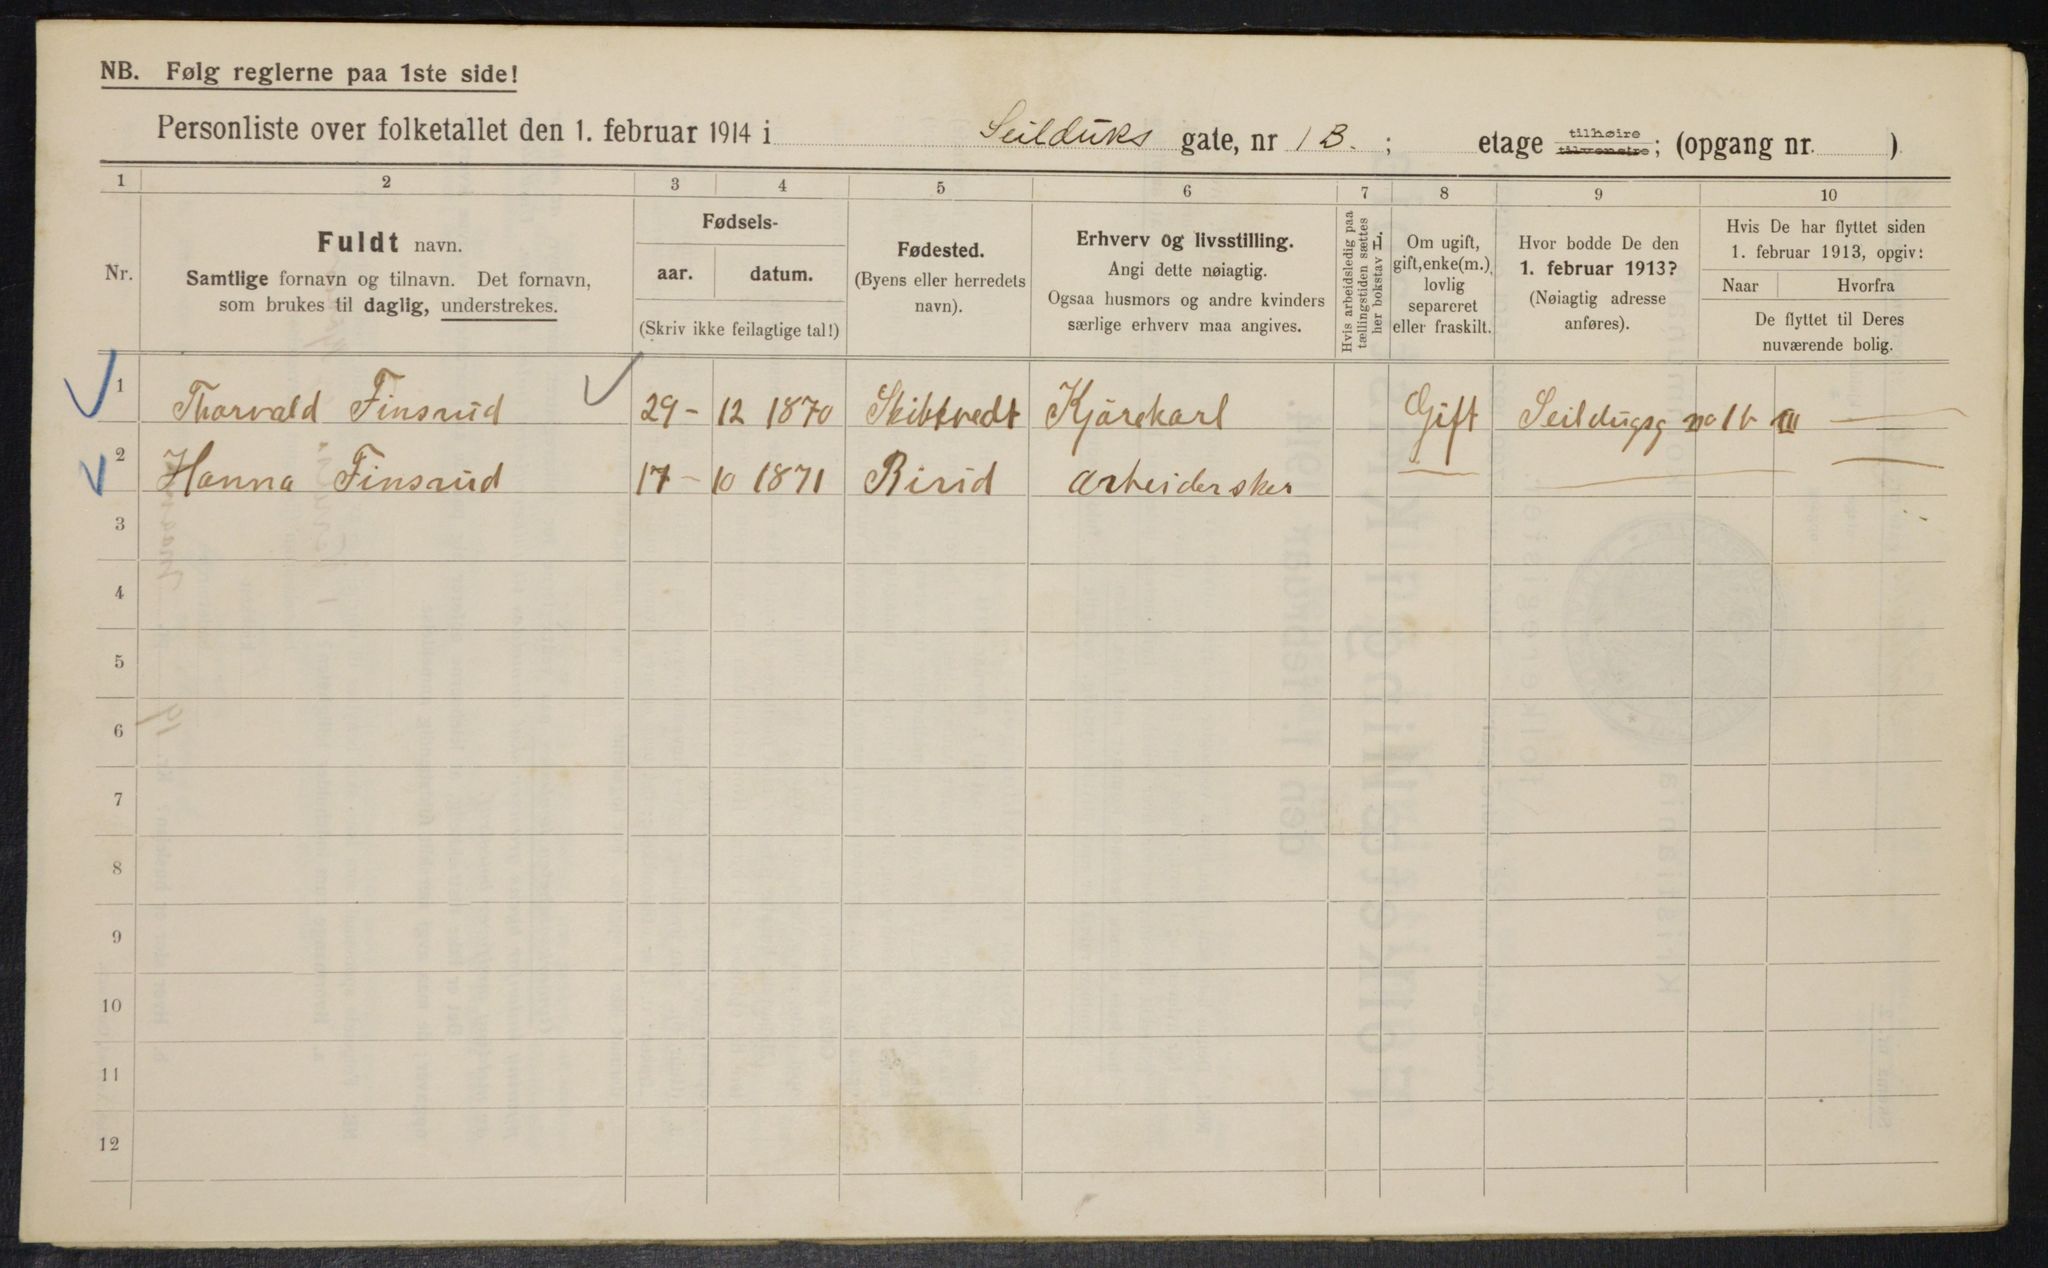 NB. Følg reglerne paa 1ste side!
Personliste over folketallet den 1. februar 1914 i Seilduks gate, nr 1B. ; etage tilhøire tilvenstre; (opgang nr. )
1 2 3 4 5 6 7 8 9 10
Nr.
Fuldt navn.
Samtlige fornavn og tilnavn. Det fornavn,
som brukes til daglig, understrekes.
Fødsels-
aar. datum.
(Skriv ikke feilagtige tal!)
Fødested.
(Byens eller herredets
navn).
Erhverv og livsstilling.
Angi dette nøiagtig.
Ogsaa husmors og andre kvinders
særlige erhverv maa angives.
Hvis arbeidsledig paa
tællingstiden sættes
her bokstav L.
Om ugift,
gift, enke(m.),
lovlig
separeret
eller fraskilt.
Hvor bodde De den
1. februar 1913?
(Nøiagtig adresse
anføres).
Hvis De har flyttet siden
1. februar 1913, opgiv:
Naar Hvorfra
De flyttet til Deres
nuværende bolig.
1 Thorvald Finsrud 29 - 12 1870 Skibtvedt Kjørekarl Gift Seildugsg no 1b III —
2 Hanna Finsrud 17 - 10 1871 Birid arbeidersker — — —
3
4
5
6
7
8
9
10
11
12